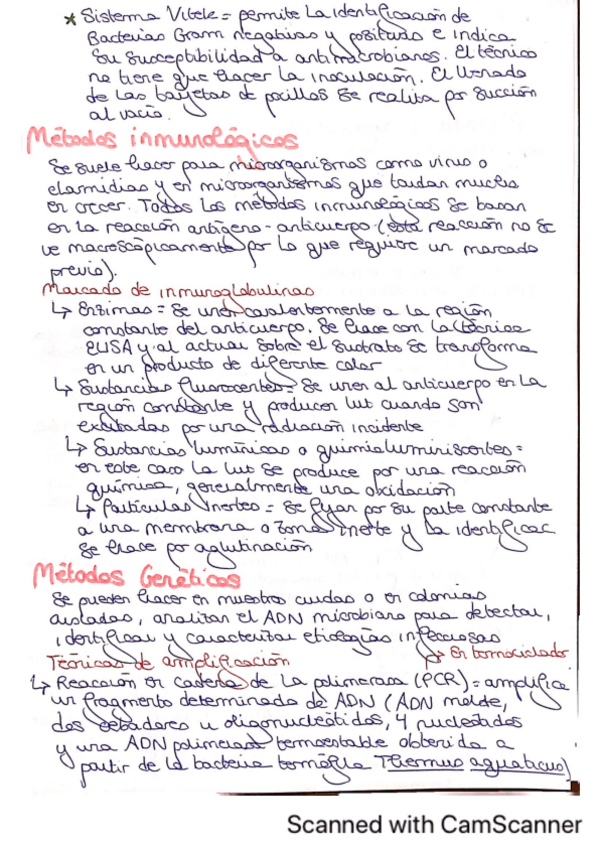 * Sistema Vitek = permite la identificación de
Bacterias Gram negativas y positivas e indica
su susceptibilidad a antimicrobianos. El técnico
no tiene que hacer la inoculación. El llenado
de las tarjetas de pocillos se realiza por succión
al vacío.
Métodos inmunológicos
Se suele hacer para microorganismos como virus o
clamidias y en microorganismos que tardan mucho
en crecer. Todos los métodos inmunológicos se basan
en la reacción antígeno-anticuerpo (esta reacción no se
ve macroscópicamente por lo que requiere un marcado
previo).
Marcado de inmunoglobulinas
↳ Enzimas = se unen covalentemente a la región
constante del anticuerpo. Se hace con la técnica
ELISA y al actuar sobre el sustrato se transforma
en un producto de diferente color
↳ Sustancias fluorocentes = se unen al anticuerpo en la
región constante y producen luz cuando son
excitadas por una radiación incidente
↳ Sustancias lumínicas o quimioluminiscentes =
en este caso la luz se produce por una reacción
química, generalmente una oxidación
↳ Partículas inertes = se fijan por su parte constante
a una membrana o zona inerte y la identificac
se hace por aglutinación
Métodos Genéticos
Se pueden hacer en muestras crudas o en colonias
aisladas, analizan el ADN microbiano para detectar,
identificar y caracterizar etiologías infecciosas
Técnicas de amplificación
↳ En termociclador
↳ Reacción en cadena de la polimerasa (PCR) = amplifica
un fragmento determinado de ADN (ADN molde,
dos cebadores u oligonucleótidos, 4 nucleótidos
y una ADN polimerasa termoestable obtenida a
partir de la bacteria termófila Thermus aquaticus)
Scanned with CamScanner